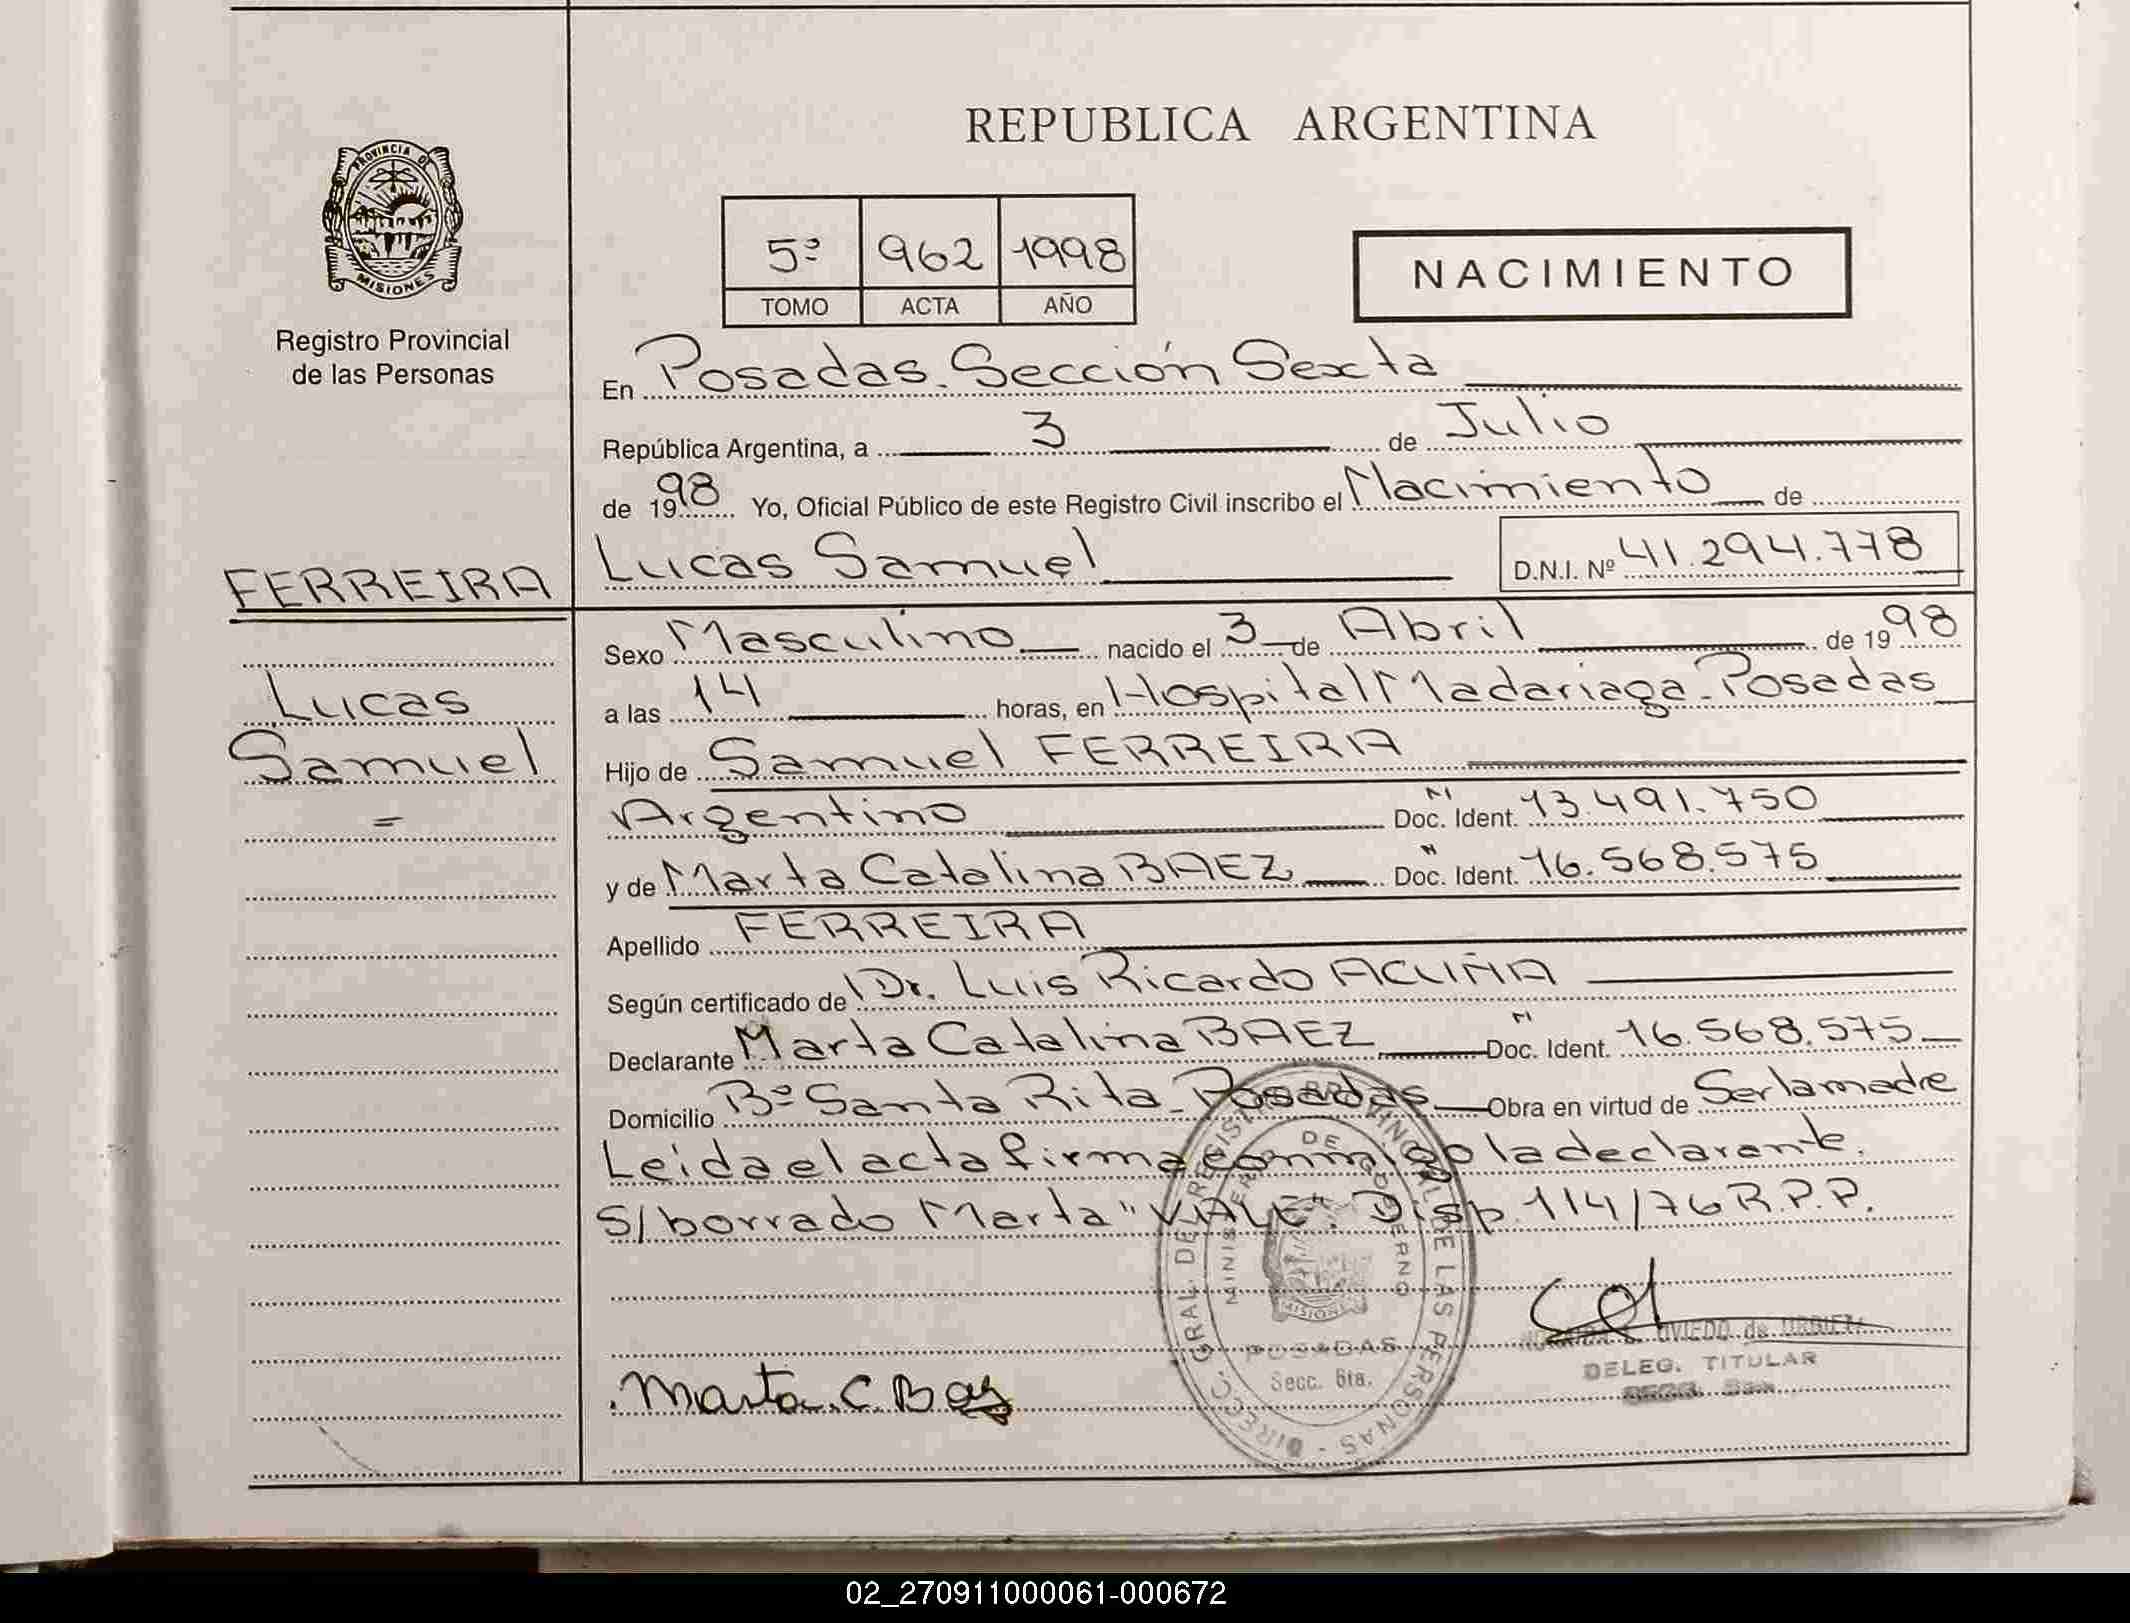 REPUBLICA ARGENTINA
PROVINCIA DE
MISIONES
Registro Provincial
de las Personas
5º 962 1998
TOMO ACTA AÑO
NACIMIENTO
En Posadas. Sección Sexta
República Argentina, a 3 de Julio
de 1998 Yo, Oficial Público de este Registro Civil inscribo el Nacimiento de
FERREIRA
Lucas
Samuel
=
Lucas Samuel D.N.I. Nº 41.294.778
Sexo Masculino nacido el 3 de Abril de 1998
a las 14 horas, en Hospital Madariaga - Posadas
Hijo de Samuel FERREIRA
Argentino Doc. Ident. N 13.491.750
y de Marta Catalina BAEZ Doc. Ident. " 16.568.575
Apellido FERREIRA
Según certificado de Dr. Luis Ricardo ACUÑA
Declarante Marta Catalina BAEZ Doc. Ident. N 16.568.575
Domicilio Bº Santa Rita - Posadas Obra en virtud de Ser la madre
Leida el acta firma conmigo la declarante.
S/borrado Marta "VALE". Disp. 114/76 R.P.P.
Marta C. Baez
DIRECC. GRAL. DEL REGISTRO PROVINCIAL DE LAS PERSONAS
MINISTERIO DE GOBIERNO
MISIONES
POSADAS
Secc. 6ta.
OVIEDO de URBIETA
DELEG. TITULAR
02_270911000061-000672